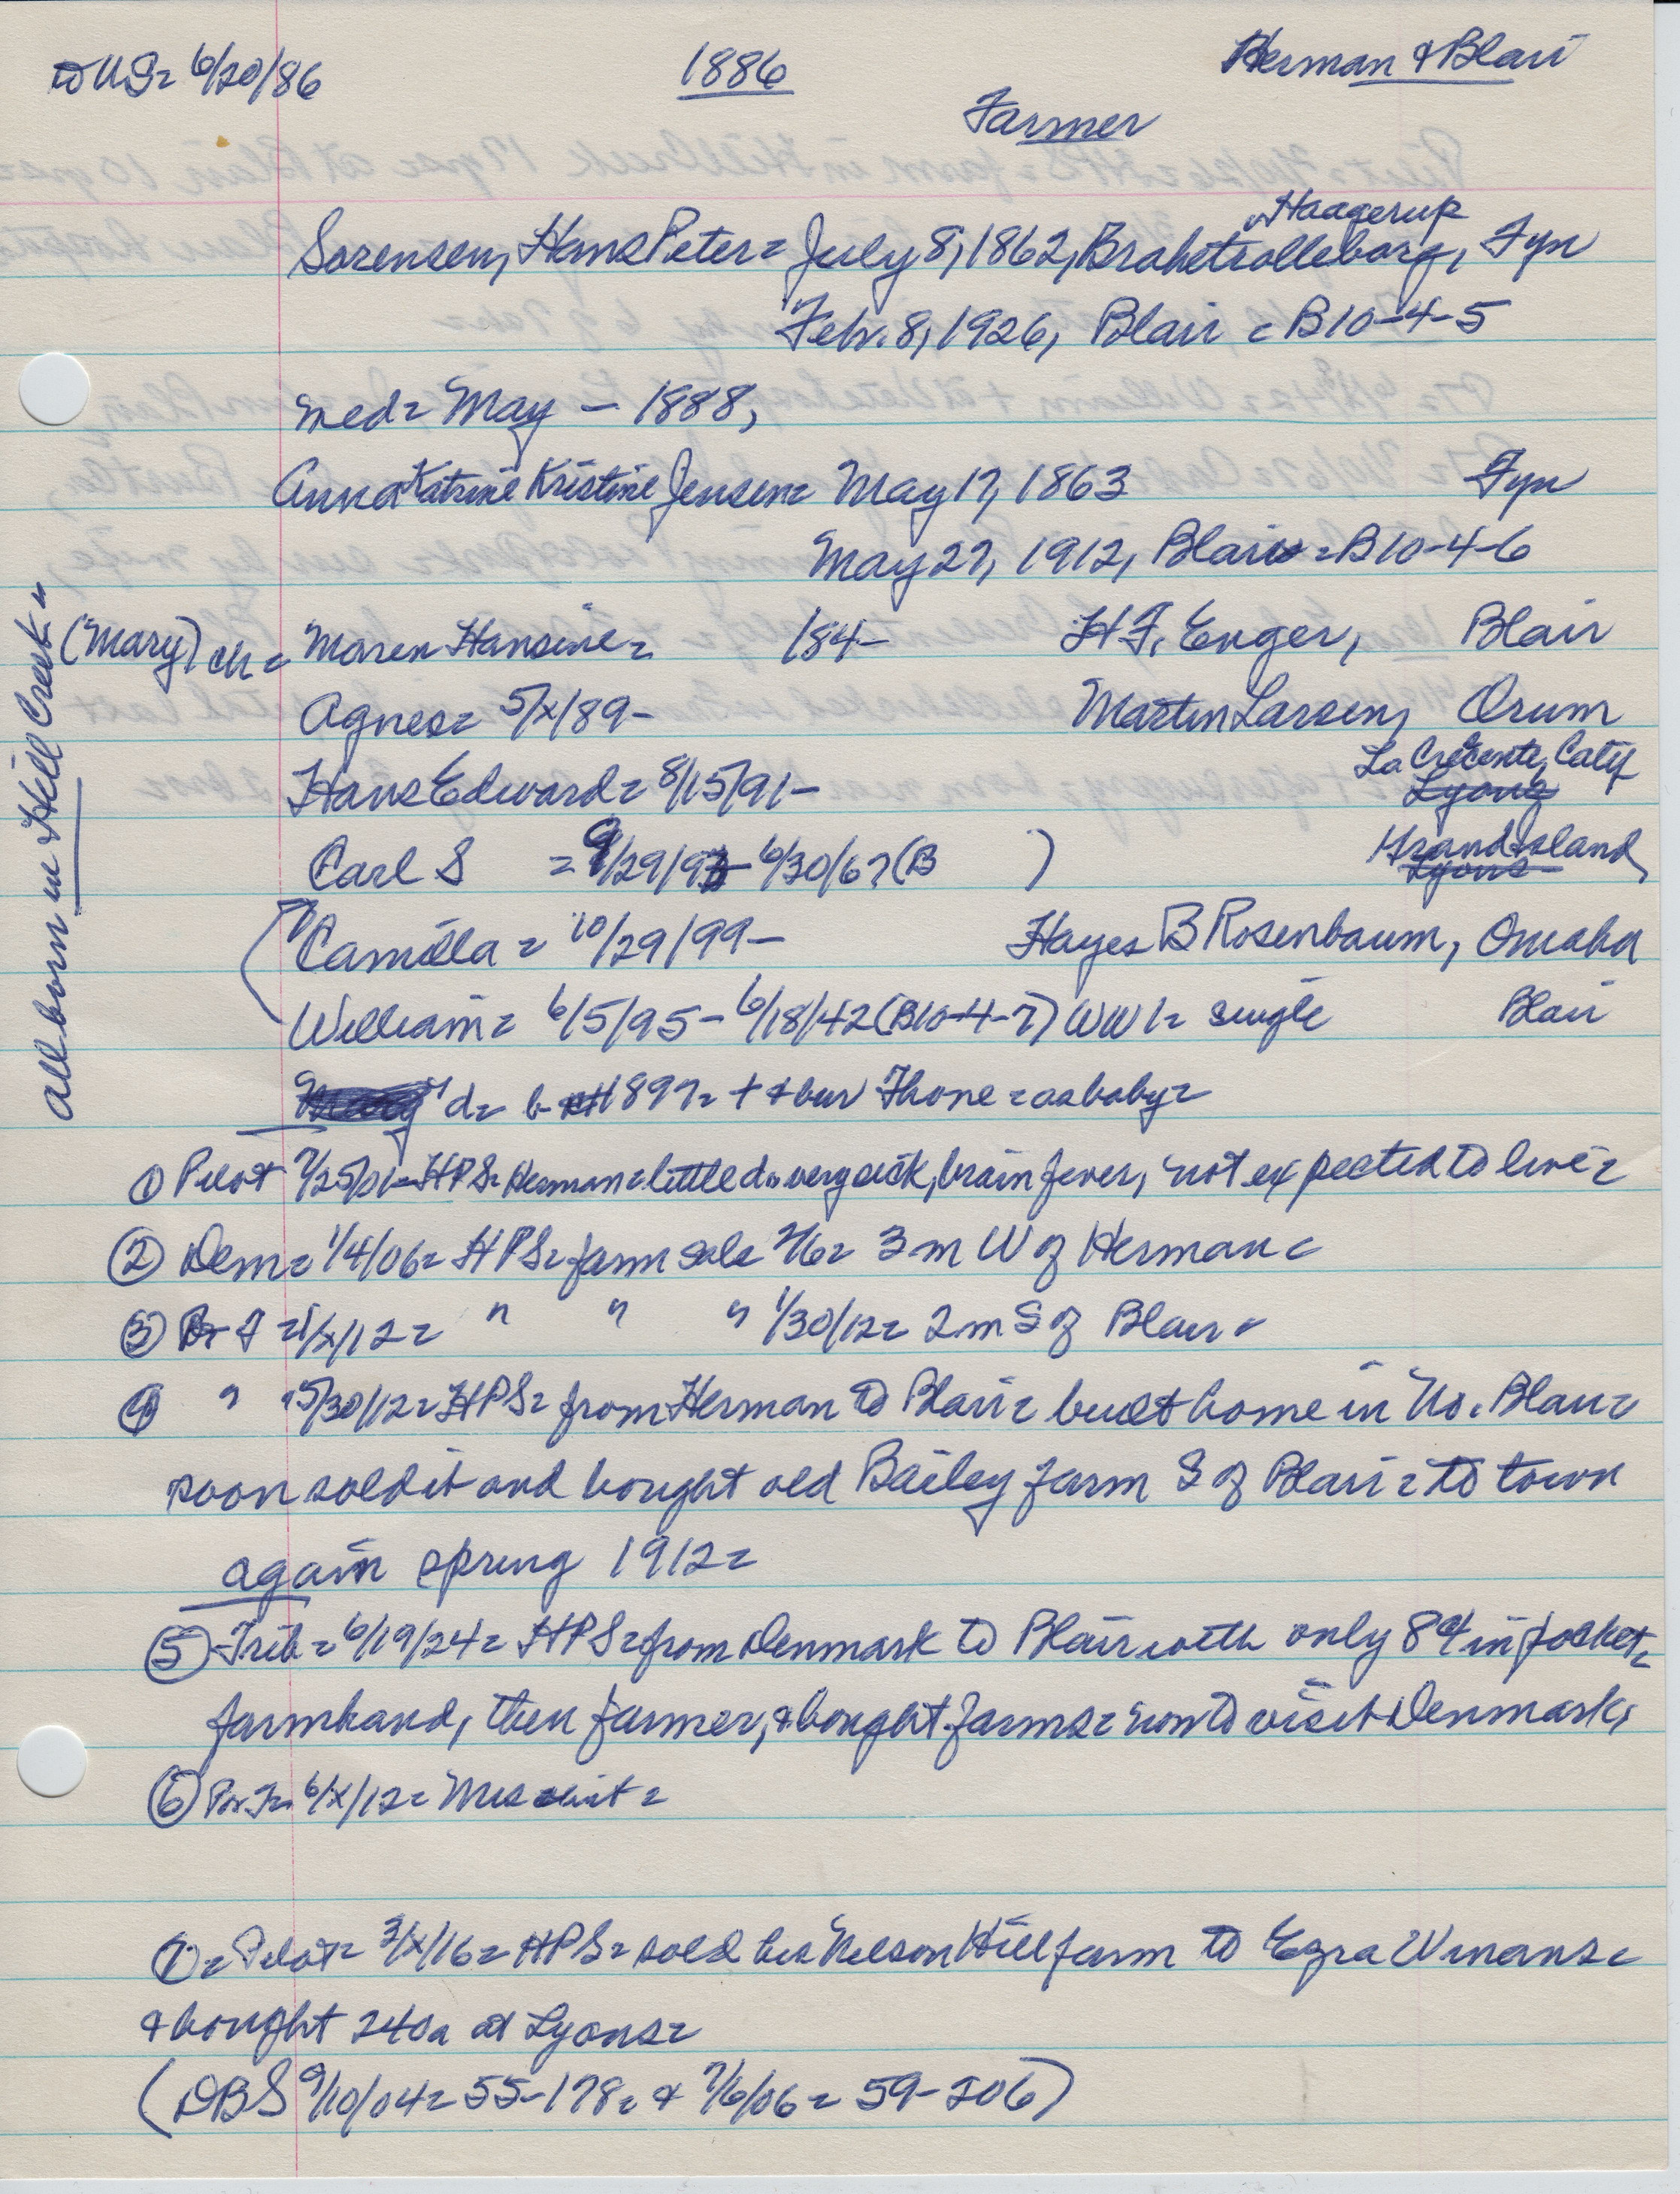 to US= 6/20/86
1886
Herman & Blair
Farmer
Haagerup
Sorensen, Hans Peter= July 8, 1862, Brahetrolleborg, Fyn
Feb. 8, 1926, Blair = B10-4-5
med= May - 1888,
Anna Katrine Kristine Jensen= May 17, 1863 Fyn
May 27, 1912, Blair = B10-4-6
(Mary) ch= Maren Hansine= 184- H F. Enger, Blair
Agnes= 5/x/89- Martin Larsen, Orum
La Crecente, Calif
Hans Edward= 8/15/91- Lyons
Grand Island,
Carl S = 9/29/93- 6/30/67 (B ) Lyons
Camilla = 10/29/99- Hayes B Rosenbaum, Omaha
William= 6/5/95- 6/18/42 (B10-4-7) WW1= single Blair
d= b 1897= + & bur Fhone = as baby=
all born in Hill Creek=
① Pilot 7/25/01= HPS= Herman= little d= very sick, brain fever, not expected to live=
② Dem= 1/4/06= HPS= farm sale 2/6= 3 m W of Herman=
③ 1/x/12= " " " 1/30/12= 2 m S of Blair=
④ " 5/30/12= HPS= from Herman to Blair= built home in No. Blair=
soon sold it and bought old Bailey farm S of Blair= to town
again spring 1912=
⑤ Trib= 6/19/24= HPS= from Denmark to Blair with only 8¢ in pocket=
farmhand, then farmer, & bought farms= now to visit Denmark,
⑥ 6/x/12= Mrs obit=
⑦= Pilot= 3/x/16= HPS= sold his Nelson Hill farm to Ezra Winans=
& bought 240a at Lyons=
(DBS 9/10/04= 55-178= & 7/6/06= 59-206)